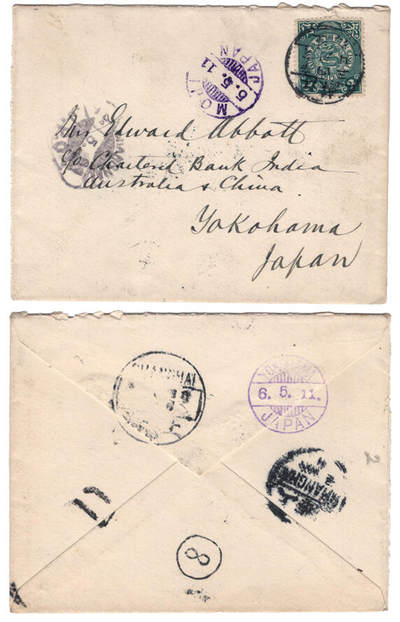 MOJI
5.5.11
JAPAN
Mrs Edward Abbott
c/o Chartered Bank India
Australia & China
Yokohama
Japan
SHANGHAI
6. 5. 11.
JAPAN
SHANGHAI
2
8